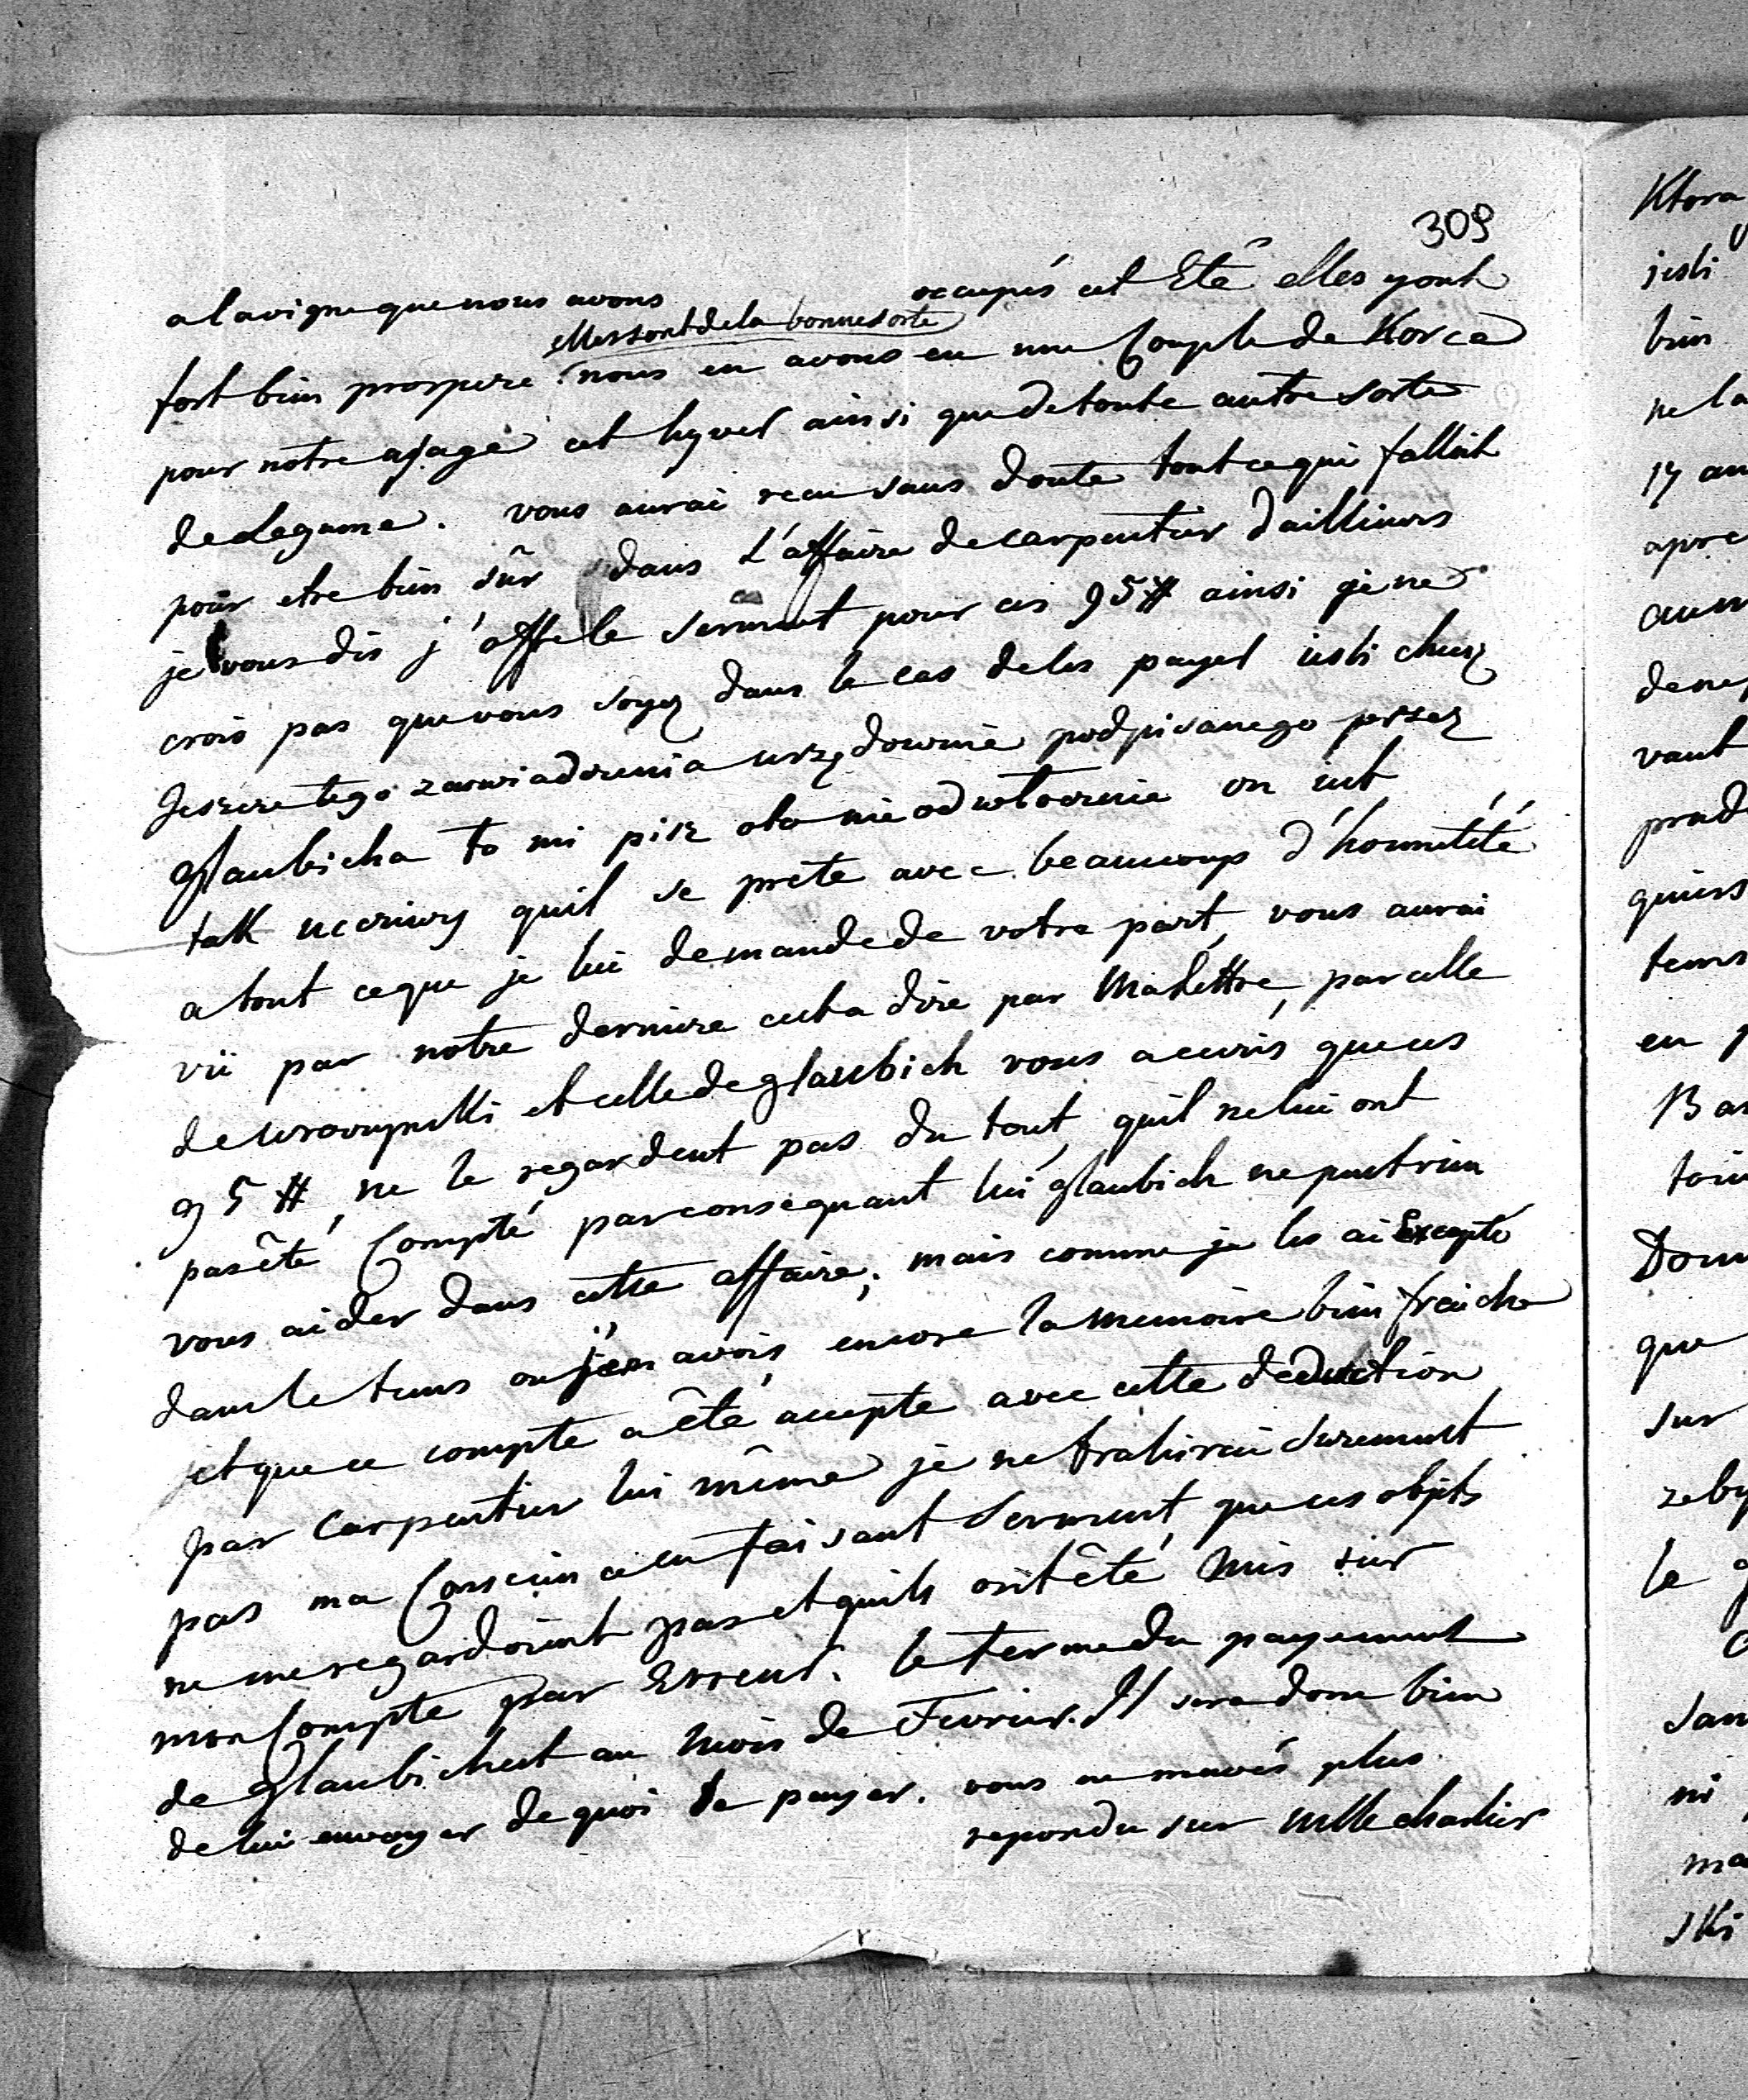 309
a la vigne que nous avons occupés cet Eté elles y ont
elles sont de la bonne sorte
fort bien prospere. nous en avons eu une Couple de Korce
pour notre usage cet hyver ainsi que de toute autre sorte
de legume. vous aurai recu sans doute tout ce qui falloit
pour etre bien sûr dans L'affaire de carpentier d'aillieurs
je vous dis j'offre le serment pour ces 95 # ainsi je ne
crois pas que vous soyez dans le cas de les payer iesli chcesz
Jeszcze tego zaswiadczenia urzędownie podpisanego przez
Glaubicha to mi pisz oto nie odwłocznie on iest
tak uccziwy quil se prete avec beaucoup d'honnetété
a tout ce que je lui demande de votre part, vous aurai
vû par notre derniere cest a dire par Ma lettre, par celle
de et celle de glaubich vous a ecris que ces
95 #, ne le regardent pas du tout, quil ne lui ont
pas êté Compté par consequant lui glaubich ne peut rien
vous aider dans cette affaire; mais comme je les ai Excepté
dans le tems ou j'en avois encore la memoire bien fraiche
et que ce compte a êté accepté avec cette deduction
par Carpentier lui même je ne trahirai surement
pas ma Consience en faisant Serment, que ces objets
ne me regardoient pas et quils ont êté mis sur
mon Compte par Erreur. le terme du payement
de Glaubich est au mois de Fevrier. Il sera donc bien
de lui envoyer de quoi le payer. vous ne mavés plus
repondu sur mlle charlier
Ktora
jesli
bien
ne la
17 au
apre
de ne
vant
prud
tems
en
que
sur
le
ni
ma
ski